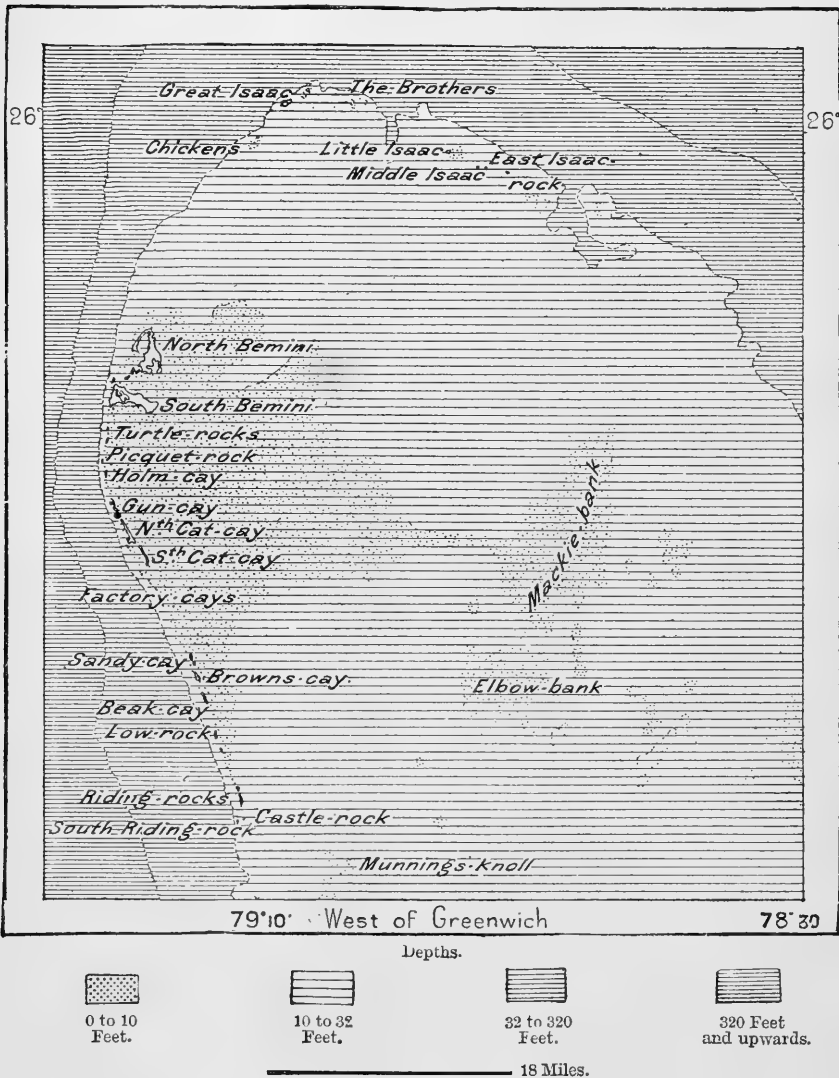 Great Isaac
The Brothers
26°
26°
Chickens
Little Isaac
East Isaac
Middle Isaac
rock
North Bemini
South Bemini
Turtle-rocks
Picquet-rock
Holm-cay
Gun-cay
Nth Cat-cay
Sth Cat-cay
Mackie-bank
Factory-cays
Sandy-cay
Browns-cay
Elbow-bank
Beak-cay
Low-rock
Riding-rocks
Castle-rock
South-Riding-rock
Munnings-knoll
79°10' West of Greenwich 78°30
Depths.
0 to 10
Feet.
10 to 32
Feet.
32 to 320
Feet.
320 Feet
and upwards.
18 Miles.